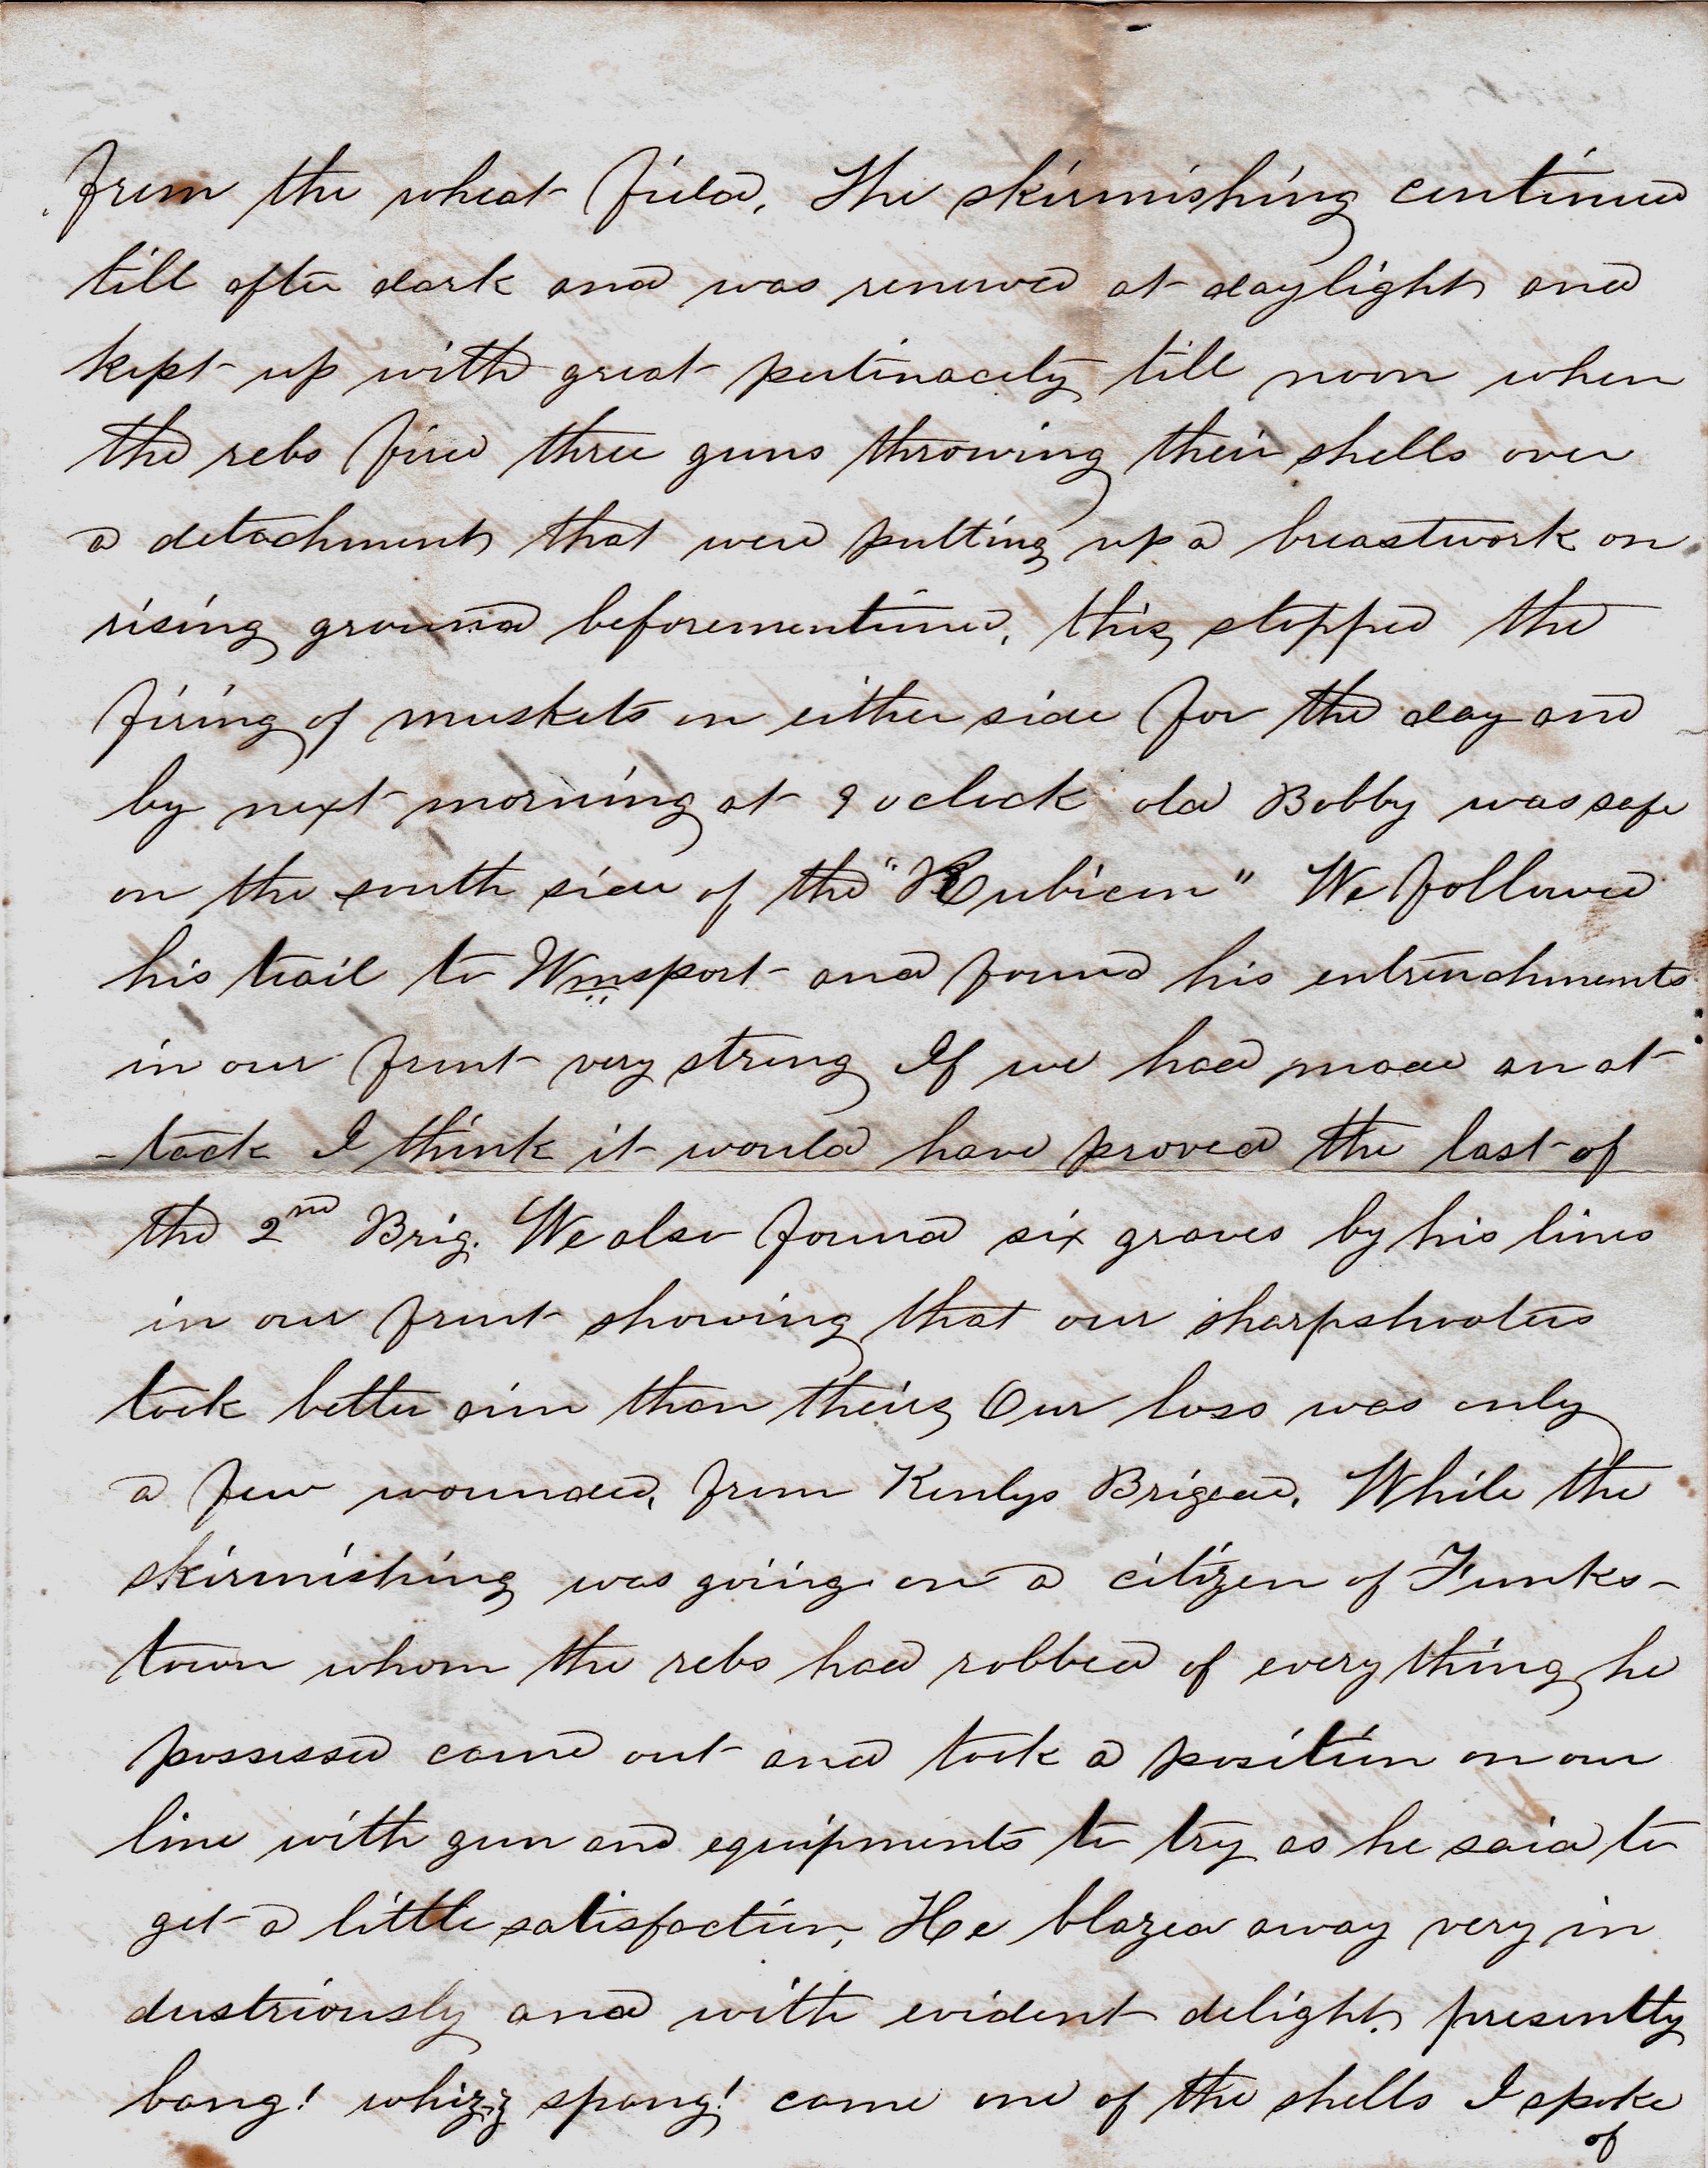 from the wheat field, The skirmishing continued
till after dark and was renewed at daylight and
kept up with great pertinacity till noon when
the rebs fired three guns throwing their shells over
a detachment that were putting up a breastwork on
rising ground beforementioned, this stopped the
firing of muskets on either side for the day and
by next morning at 9 oclock old Bobby was safe
on the south side of the "Rubicon" We followed
his trail to Wmsport and found his entrenchments
in our front very strong If we had made an at
-tack I think it would have proved the last of
the 2nd Brig. We also found six graves by his lines
in our front showing that our sharpshooters
took better aim than theirs Our loss was only
a few wounded, from Kenlys Brigade. While the
skirmishing was going on a citizen of Funks-
town whom the rebs had robbed of every thing he
possessed came out and took a position on our
line with gun and equipments to try as he said to
get a little satisfaction, He blazed away very in
dustriously and with evident delight, presently
bang! whizzz spang! came one of the shells I spoke
of